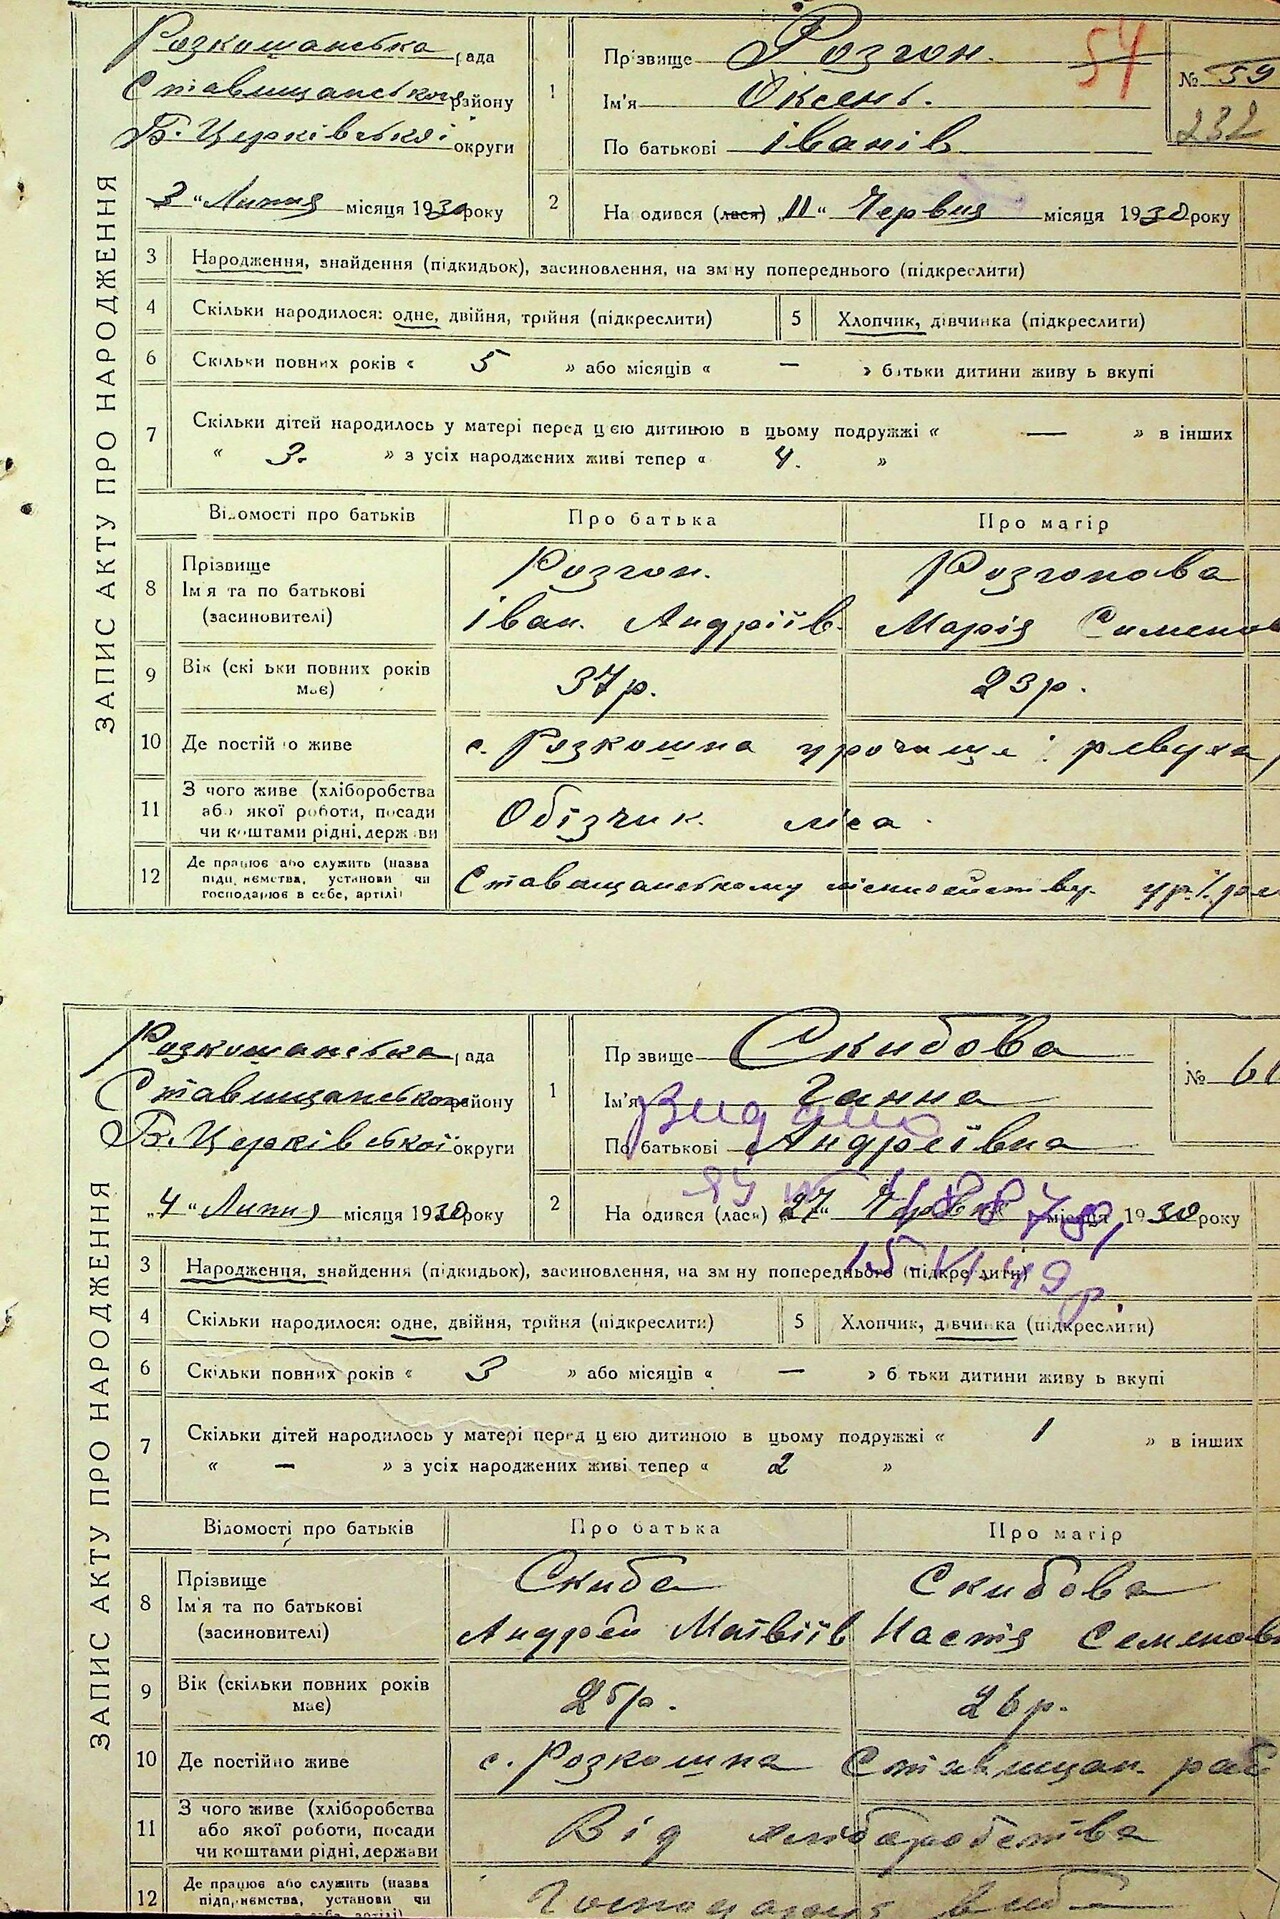 ЗАПИС АКТУ ПРО НАРОДЖЕННЯ
Розкошанська рада
Ставищанського району
Б. Церківської округи
3 "Липня місяця 1930 року
1
Прізвище Розгон.
Ім'я Оксень.
По батькові Іванів
54
№ 59
232
2
Народився (лася) „11“ Червня місяця 1930 року
3 Народження, знайдення (підкидьок), засиновлення, на зміну попереднього (підкреслити)
4 Скільки народилося: одне, двійня, трійня (підкреслити) 5 Хлопчик, дівчинка (підкреслити)
6 Скільки повних років « 5 » або місяців « — » батьки дитини живуть вкупі
7 Скільки дітей народилось у матері перед цією дитиною в цьому подружжі « — » в інших
« 3. » з усіх народжених живі тепер « 4. »
Відомості про батьків Про батька Про матір
8 Прізвище Розгон. Розгонова
Ім'я та по батькові Іван. Андріїв. Марія Сименов
(засиновителі)
9 Вік (скільки повних років має) 37 р. 23 р.
10 Де постійно живе с. Розкошна урочище ревуха
11 З чого живе (хліборобства
або якої роботи, посади Обізчик ліса.
чи коштами рідні, держави
12 Де працює або служить (назва
підприємства, установи чи Ставищанському
господарює в себе, артілі)
ЗАПИС АКТУ ПРО НАРОДЖЕННЯ
Розкошанська рада
Ставищанського району
Б. Церківської округи
„4“ Липня місяця 1930 року
1
Прізвище Скибова
Ім'я Ганна
По батькові Андреївна
№ 60
Видано
2
Народився (лася) „27“ Червня місяця 1930 року
15 VI 49 р.
3 Народження, знайдення (підкидьок), засиновлення, на зміну попереднього (підкреслити)
4 Скільки народилося: одне, двійня, трійня (підкреслити) 5 Хлопчик, дівчинка (підкреслити)
6 Скільки повних років « 3 » або місяців « — » батьки дитини живуть вкупі
7 Скільки дітей народилось у матері перед цією дитиною в цьому подружжі « 1 » в інших
« — » з усіх народжених живі тепер « 2 »
Відомості про батьків Про батька Про матір
8 Прізвище Скиба Скибова
Ім'я та по батькові Андрей Матвіїв Настя Семенов
(засиновителі)
9 Вік (скільки повних років має) 25 р. 26 р.
10 Де постійно живе с. Розкошна Ставищан. рай
11 З чого живе (хліборобства
або якої роботи, посади Від хліборобства
чи коштами рідні, держави
12 Де працює або служить (назва
підприємства, установи чи